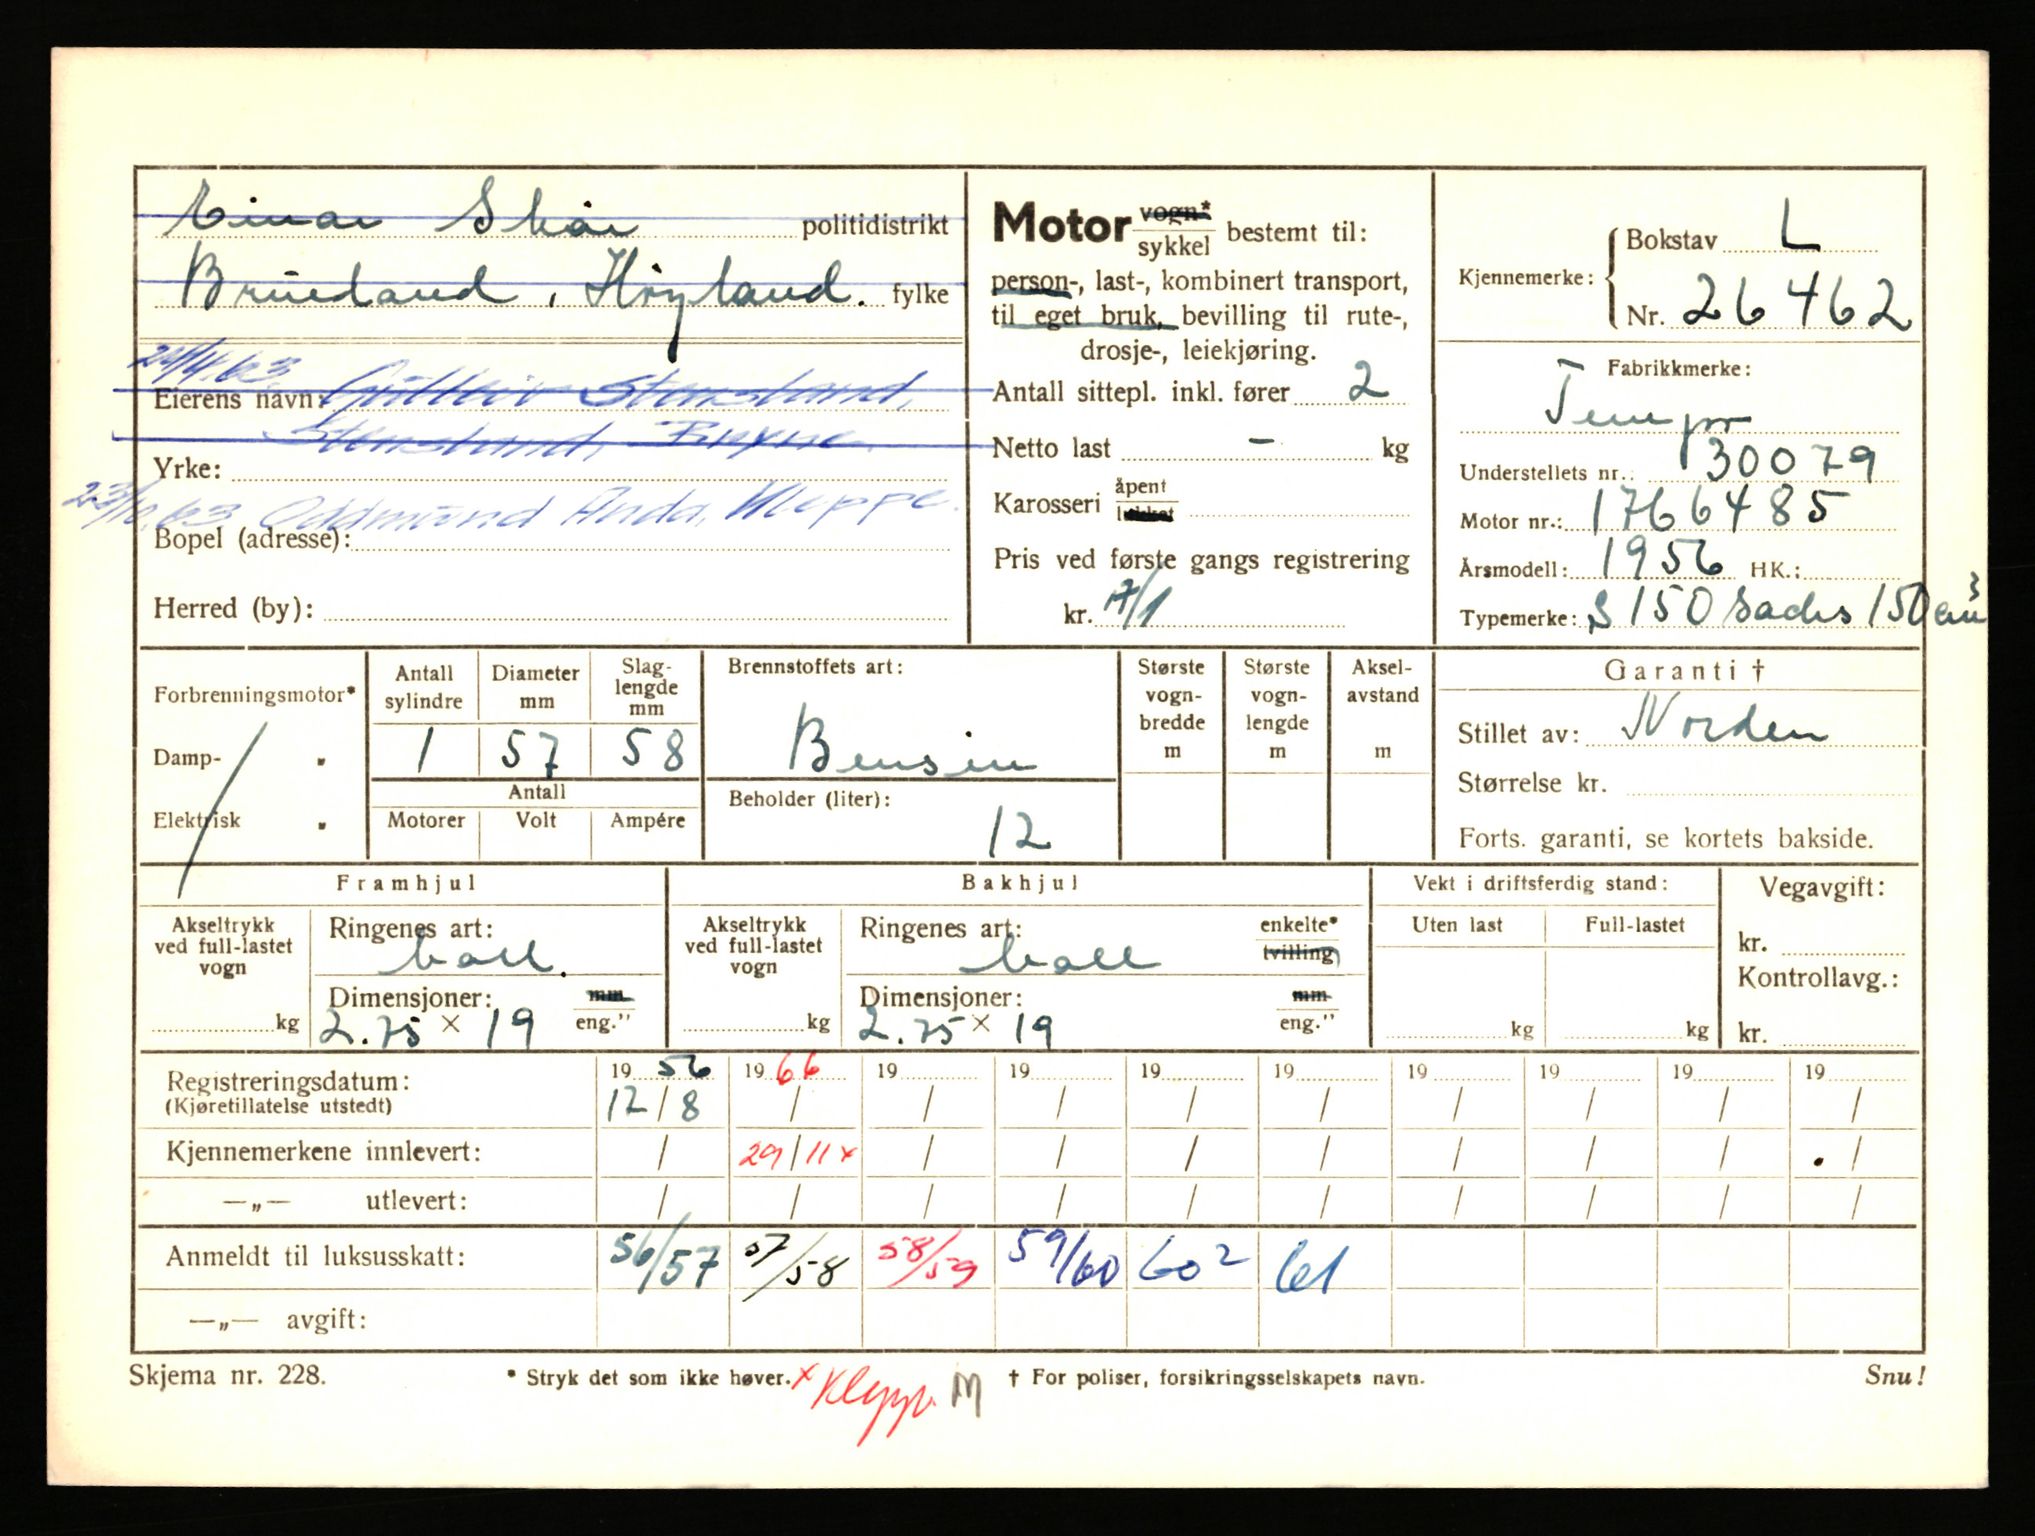 Einar Skår politidistrikt
Brueland, Höyland. fylke
24/4.63.
Eierens navn: Stensland,
Stensland, Bryne
Yrke:
23/10.63 Oddmund Anda, Kleppe.
Bopel (adresse):
Herred (by):
Motor vogn* sykkel bestemt til:
person-, last-, kombinert transport,
til eget bruk, bevilling til rute-,
drosje-, leiekjøring.
Antall sittepl. inkl. fører 2
Netto last - kg
Karosseri åpent lukket
Pris ved første gangs registrering
kr. 17/1
Kjennemerke: Bokstav L
Nr. 26462
Fabrikkmerke:
Tempo
Understellets nr.: 30079
Motor nr.: 1766485
Årsmodell: 1956 HK.:
Typemerke: S 150 Sachs 150 cm3
Forbrenningsmotor*
Damp- "
Elektrisk "
Antall sylindre
Diameter mm
Slag-lengde mm
1 57 58
Antall
Motorer Volt Ampére
Brennstoffets art:
Bensin
Beholder (liter):
12
Største vogn-bredde m
Største vogn-lengde m
Aksel-avstand m
Garanti †
Stillet av: Norden
Størrelse kr.
Forts. garanti, se kortets bakside.
Framhjul
Akseltrykk ved full-lastet vogn
kg
Ringenes art:
ball.
Dimensjoner: mm
2.75 x 19 eng."
Bakhjul
Akseltrykk ved full-lastet vogn
kg
Ringenes art: enkelte*
ball tvilling
Dimensjoner: mm
2.75 x 19 eng."
Vekt i driftsferdig stand:
Uten last Full-lastet
kg kg
Vegavgift:
kr.
Kontrollavg.:
kr.
Registreringsdatum: 19 56 19 66 19 19 19 19 19 19 19 19
(Kjøretillatelse utstedt) 12/8 / / / / / / / / /
Kjennemerkene innlevert: / 29/11 x / / / / / / / /
—„— utlevert: / / / / / / / / / /
Anmeldt til luksusskatt: 56/57 57/58 58/59 59/60 60 2 61
—„— avgift:
Skjema nr. 228. * Stryk det som ikke høver. x Klepp. M † For poliser, forsikringsselskapets navn. Snu!